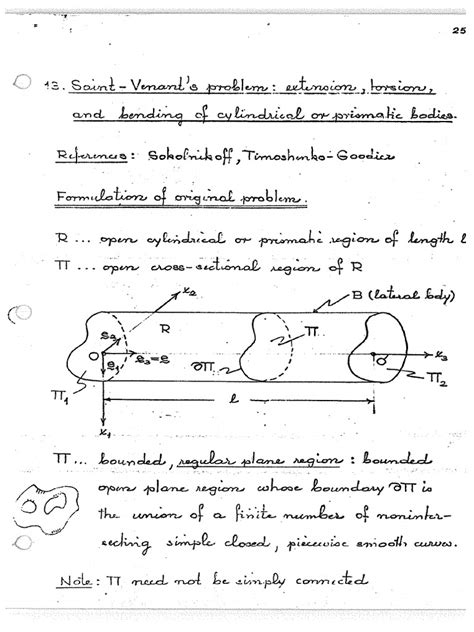 25
13. Saint-Venant's problem: extension, torsion,
and bending of cylindrical or prismatic bodies.
References: Sokolnikoff, Timoshenko-Goodier
Formulation of original problem.
R ... open cylindrical or prismatic region of length l
Π ... open cross-sectional region of R
x₂
B (lateral bdy)
R
Π
e₂
O
e₃=e
∂Π
O'
x₃
e₁
Π₁
Π₂
l
x₁
Π... bounded, regular plane region: bounded
open plane region whose boundary ∂Π is
the union of a finite number of noninter-
secting simple closed, piecewise smooth curves.
Note: Π need not be simply connected